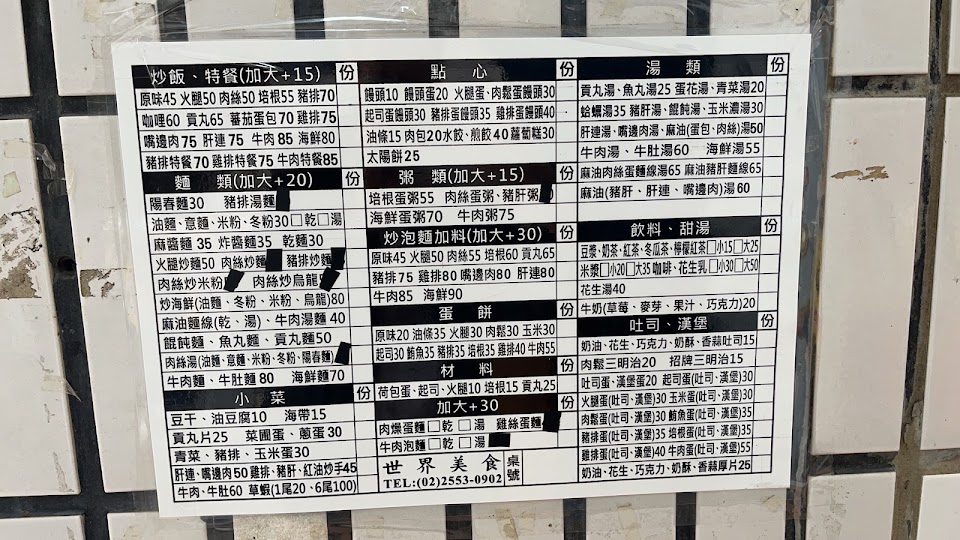 炒飯、特餐(加大+15) 份
原味45 火腿50 肉絲50 培根55 豬排70
咖哩60 貢丸65 蕃茄蛋包70 雞排75
嘴邊肉75 肝連75 牛肉85 海鮮80
豬排特餐70 雞排特餐75 牛肉特餐85
麵 類(加大+20) 份
陽春麵30 豬排湯麵
油麵、意麵、米粉、冬粉30□乾□湯
麻醬麵35 炸醬麵35 乾麵30
火腿炒麵50 肉絲炒麵 豬排炒麵
肉絲炒米粉 肉絲炒烏龍
炒海鮮(油麵、冬粉、米粉、烏龍)80
麻油麵線(乾、湯)、牛肉湯麵40
餛飩麵、魚丸麵、貢丸麵50
肉絲湯(油麵、意麵、米粉、冬粉、陽春麵)
牛肉麵、牛肚麵80 海鮮麵70
小 菜 份
豆干、油豆腐10 海帶15
貢丸片25 菜圃蛋、蔥蛋30
青菜、豬耳、玉米蛋30
肝連、嘴邊肉50 雞排、豬肝、紅油炒手45
牛肉、牛肚60 草蝦(1尾20、6尾100)
點 心 份
饅頭10 饅頭蛋20 火腿蛋、肉鬆蛋饅頭30
起司蛋饅頭30 豬排蛋饅頭35 雞排蛋饅頭40
油條15 肉包20 水餃、煎餃40 蘿蔔糕30
太陽餅25
粥 類(加大+15) 份
培根蛋粥55 肉絲蛋粥、豬肝粥
海鮮蛋粥70 牛肉粥75
炒泡麵加料(加大+30) 份
原味45 火腿50 肉絲55 培根60 貢丸65
豬排75 雞排80 嘴邊肉80 肝連80
牛肉85 海鮮90
蛋 餅 份
原味20 油條35 火腿30 肉鬆30 玉米30
起司30 鮪魚35 豬排35 培根35 雞排40 牛肉55
材 料 份
荷包蛋、起司、火腿10 培根15 貢丸25
加大+30 份
肉燥蛋麵□乾□湯 雞絲蛋麵
牛肉泡麵□乾□湯
世界美食 桌號
TEL:(02)2553-0902
湯 類 份
貢丸湯、魚丸湯25 蛋花湯、青菜湯20
蛤蠣湯35 豬肝湯、餛飩湯、玉米濃湯30
肝連湯、嘴邊肉湯、麻油(蛋包、肉絲)湯50
牛肉湯、牛肚湯60 海鮮湯55
麻油肉絲蛋麵線65 麻油豬肝麵線65
麻油(豬肝、肝連、嘴邊肉)湯60
飲料、甜湯 份
豆漿、奶茶、紅茶、冬瓜茶、檸檬紅茶□小15□大25
米漿□小20□大35 咖啡、花生乳□小30□大50
花生湯40
牛奶(草莓、麥芽、果汁、巧克力)20
吐司、漢堡 份
奶油、花生、巧克力、奶酥、香蒜吐司15
肉鬆三明治20 招牌三明治15
吐司蛋、漢堡蛋20 起司蛋(吐司、漢堡)30
火腿蛋(吐司、漢堡)30 玉米蛋(吐司、漢堡)30
肉鬆蛋(吐司、漢堡)30 鮪魚蛋(吐司、漢堡)35
豬排蛋(吐司、漢堡)35 培根蛋(吐司、漢堡)35
雞排蛋(吐司、漢堡)40 牛肉蛋(吐司、漢堡)55
奶油、花生、巧克力、奶酥、香蒜厚片25